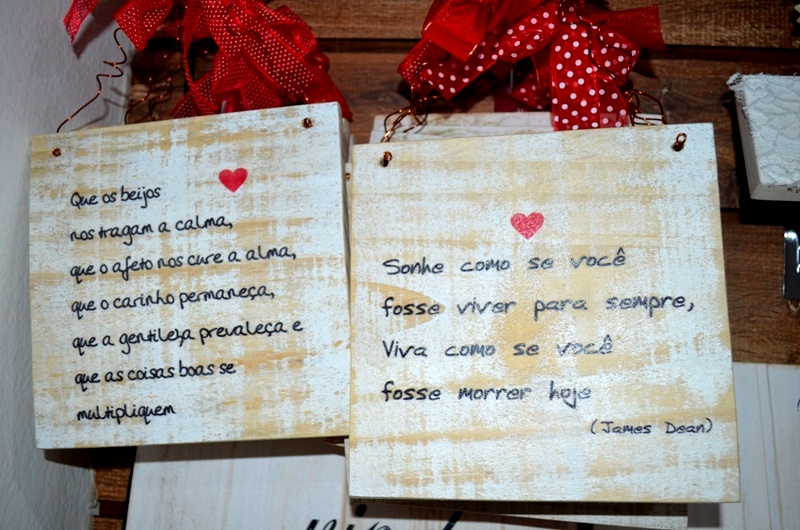 Que os beijos
nos tragam a calma,
que o afeto nos cure a alma,
que o carinho permaneça,
que a gentileza prevaleça e
que as coisas boas se
multipliquem
Sonhe como se você
fosse viver para sempre,
Viva como se você
fosse morrer hoje
(James Dean)